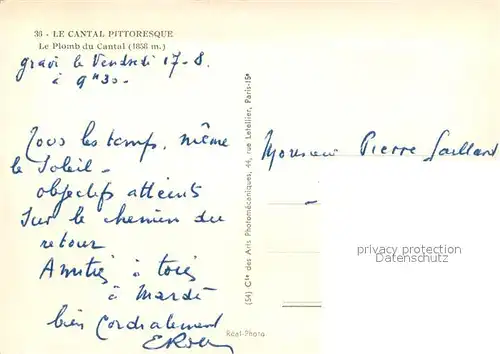 36 - LE CANTAL PITTORESQUE
Le Plomb du Cantal (1858 m.)
gravi le Vendredi 17-8.
à 9h30-
Tous les temps, même
le Soleil -
objectifs atteints
Sur le chemin du
retour
Amitiés à tous
à Mardi
bien Cordialement
(54) Cie des Arts Photomécaniques, 44, rue Letellier, Paris-15e
Réal-Photo
Monsieur Pierre Gaillard
privacy protection